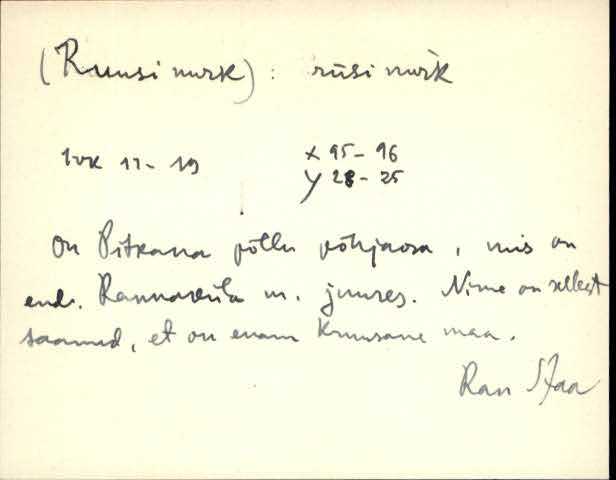 (Ruusi nurk): rūsi nurk
lvk 11-19 x 95-96
y 28-25
On Pitkana põllu põhjaosa, mis on
end. Rannaküla m. juures. Nime on sellest
saanud, et on enam kruusane maa.
Ran